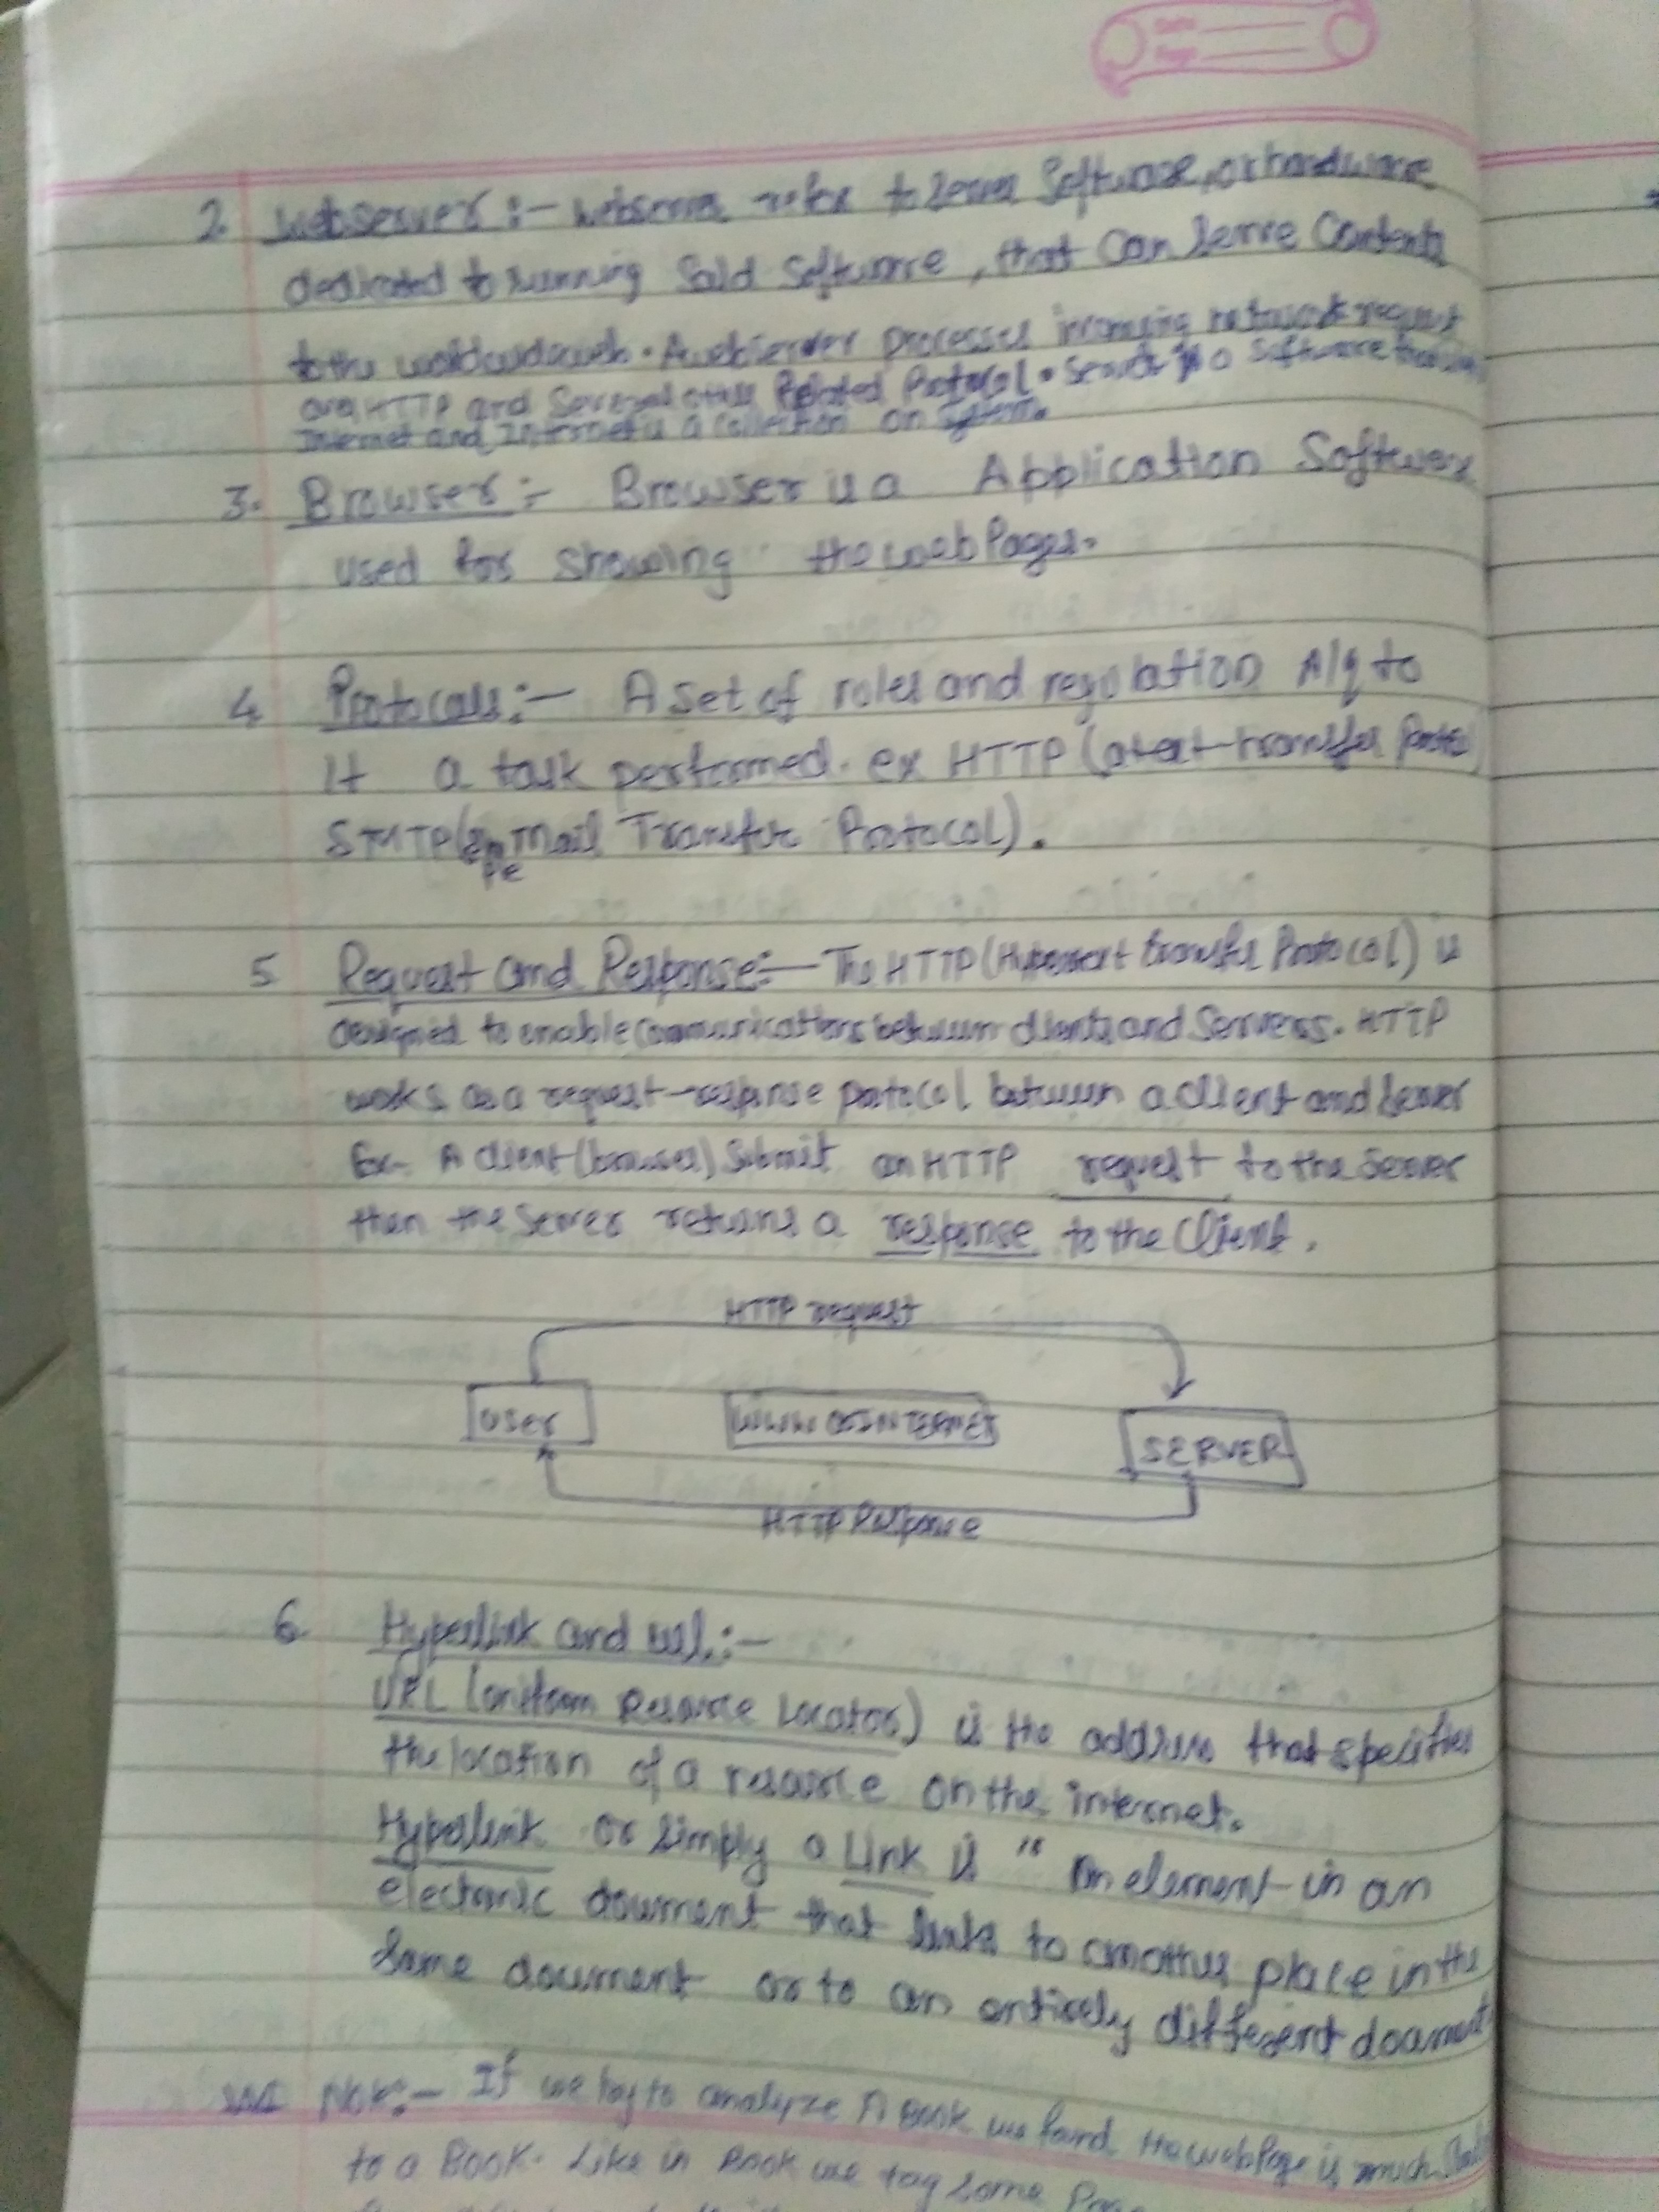 Date
Page
2. Webserver :- Webserver refer to server Software, or hardware
dedicated to running Said Software, that Can Serve Contents
to the worldwideweb. A webserver processes incoming network request
HTTP and Several other Related Protocol. Software
Internet and Internet is a collection on System.
3. Browser :- Browser is a Application Software
used for showing the web Pages.
4 Protocals :- A set of rules and regulation A/q to
It a task performed. ex HTTP ( transfer
SMTP( Mail Transfer Protocol).
5 Request and Response :- The HTTP (Hypertext transfer Protocol) is
designed to enable communications between clients and Servers. HTTP
works as a request-response protocol between a client and Server
Ex- A client (browser) Submit an HTTP request to the Server
then the Server returns a response to the Client.
HTTP request
USER
WWW OR INTERNET
SERVER
HTTP Response
6 Hyperlink and url :-
URL (uniform Resource Locator) is the address that specifies
the location of a resource on the internet.
Hyperlink or simply a Link is " An element in an
electronic document that links to another place in the
Same document or to an entirely different document
Note :- If we try to analyze A Book we found the web Page is much
to a Book. Like in Book we tag some Page